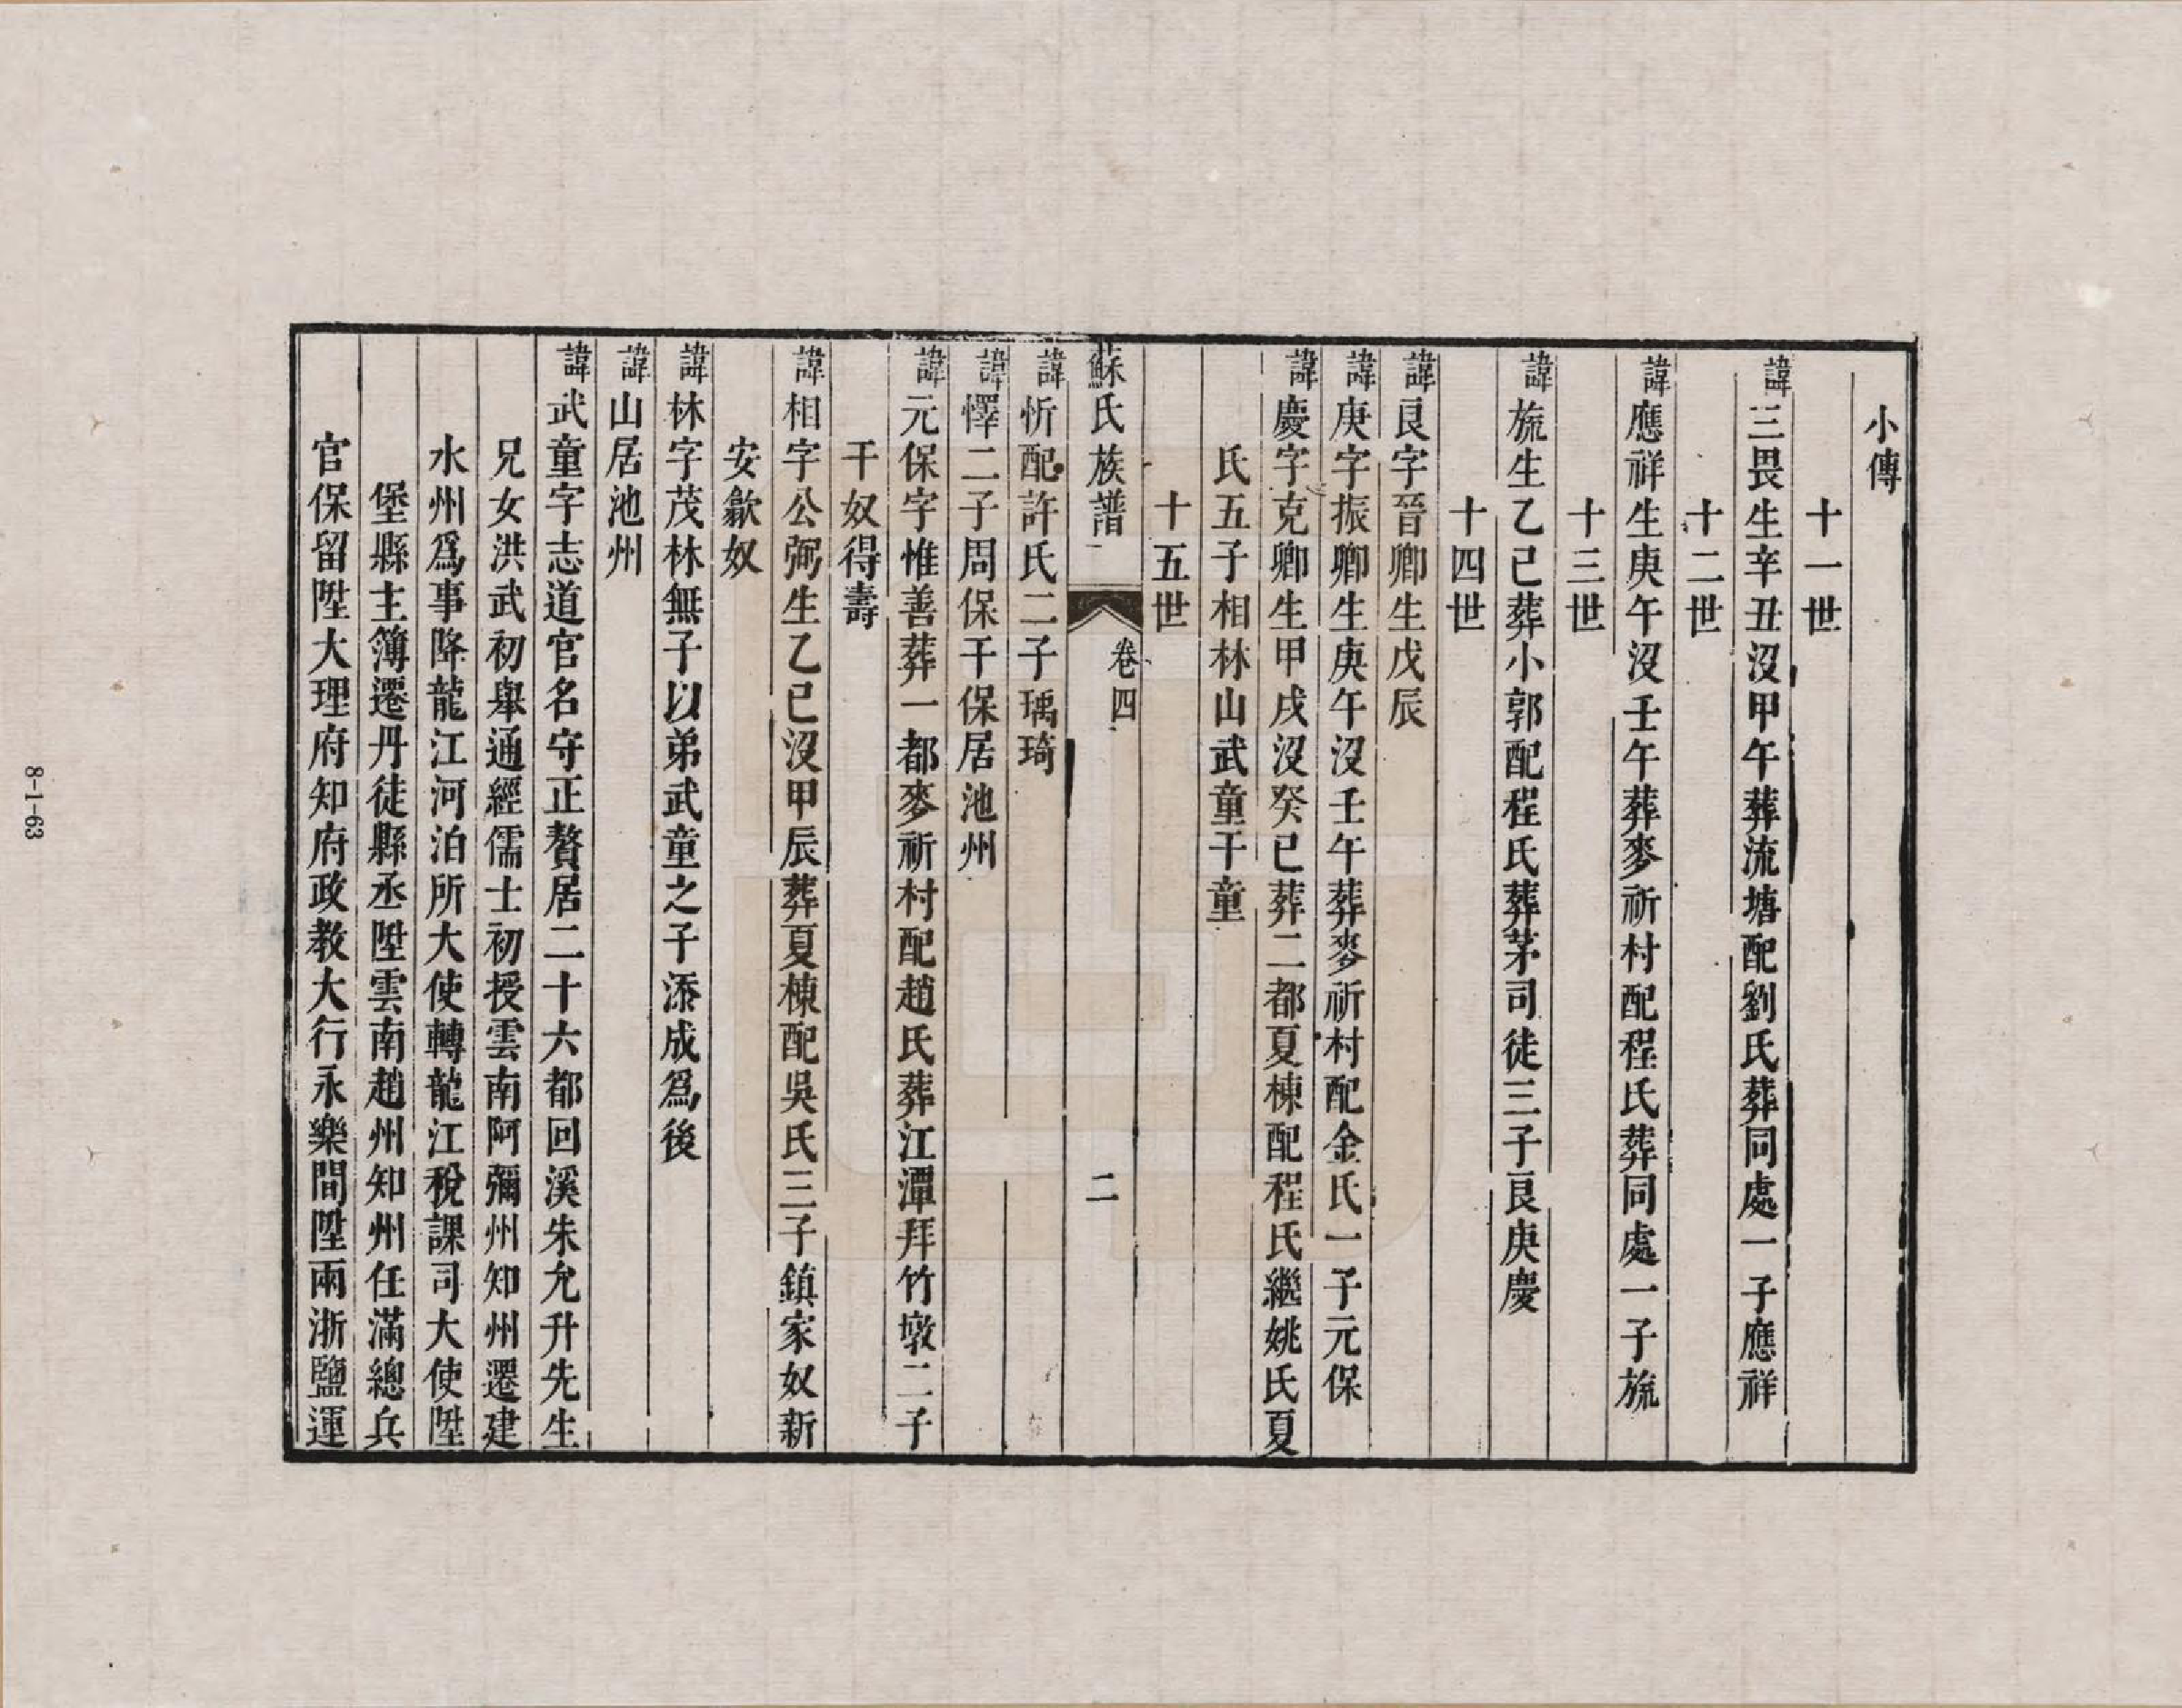 小傳
十一世
諱三畏生辛丑沒甲午葬流塘配劉氏葬同處一子應祥
十二世
諱應祥生庚午沒壬午葬麥祈村配程氏葬同處一子旒
十三世
諱旒生乙巳葬小郭配程氏葬茅司徒三子艮庚慶
十四世
諱艮字晉卿生戊辰
諱庚字振卿生庚午沒壬午葬麥祈村配金氏一子元保
諱慶字克卿生甲戌沒癸巳葬二都夏棟配程氏繼姚氏夏
氏五子相林山武童干童
十五世
蘇氏族譜
卷四
二
諱忻配許氏二子瑀琦
諱懌二子周保千保居池州
諱元保字惟善葬一都麥祈村配趙氏葬江潭拜竹墩二子
干奴得壽
諱相字公弼生乙巳沒甲辰葬夏棟配吳氏三子鎮家奴新
安歙奴
諱林字茂林無子以弟武童之子添成爲後
諱山居池州
諱武童字志道官名守正贅居二十六都回溪朱允升先生
兄女洪武初舉通經儒士初授雲南阿彌州知州遷建
水州爲事降龍江河泊所大使轉龍江稅課司大使陞
堡縣主簿遷丹徒縣丞陞雲南趙州知州任滿總兵
官保留陞大理府知府政教大行永樂間陞兩浙鹽運
8-1-63